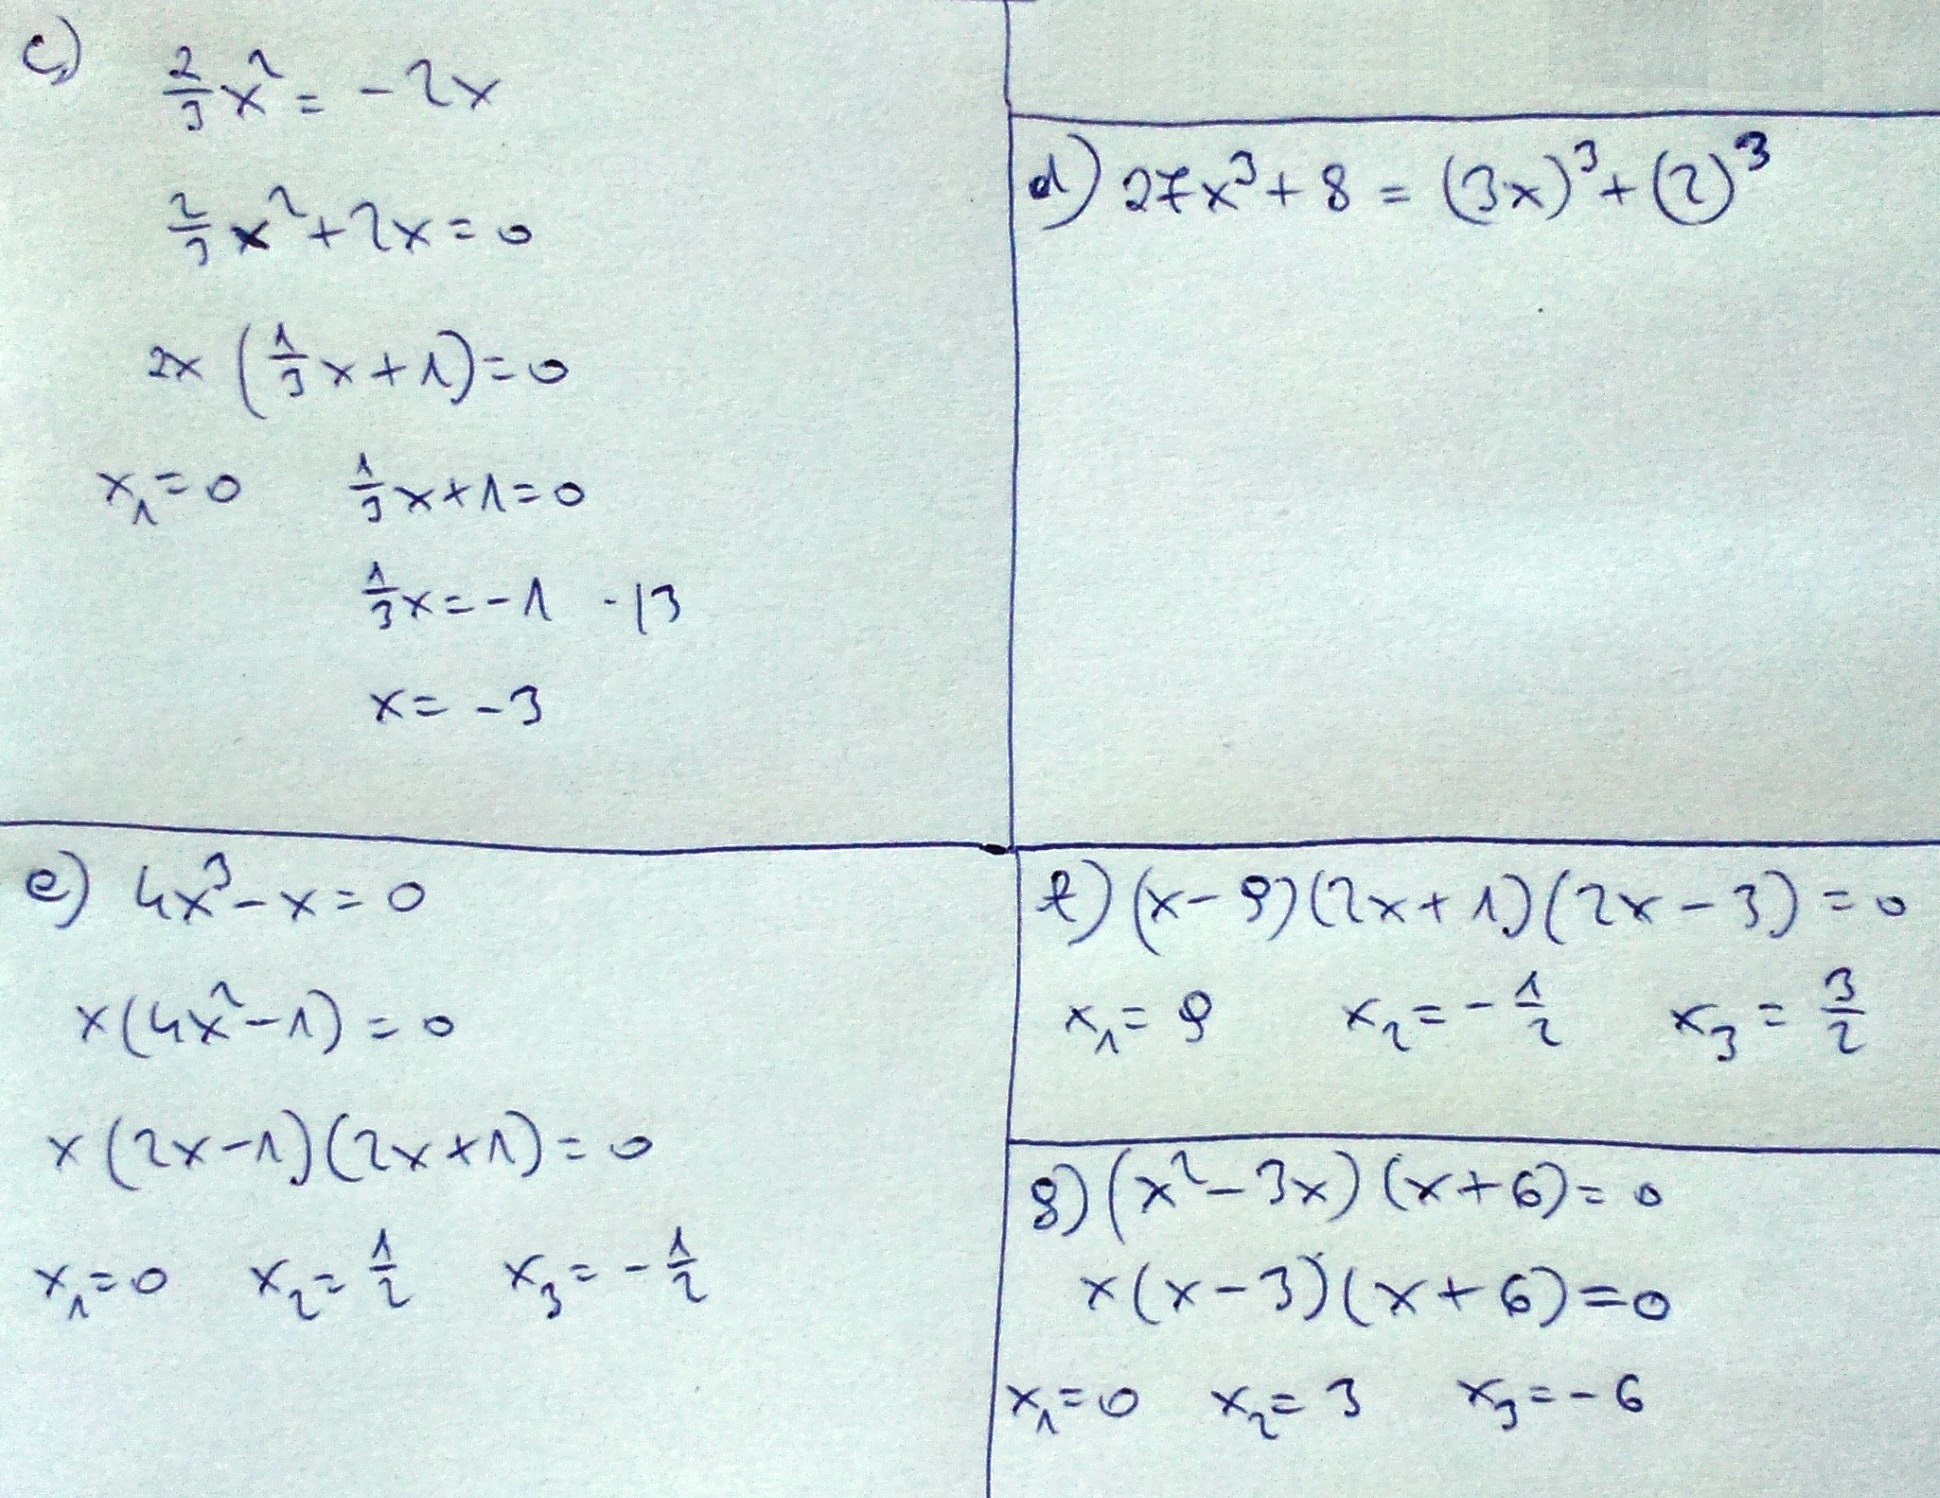 c) 2/3 x² = -2x
2/3 x² + 2x = 0
2x (1/3 x + 1) = 0
x₁ = 0 1/3 x + 1 = 0
1/3 x = -1 ·|3
x = -3
d) 27x³ + 8 = (3x)³ + (2)³
e) 4x³ - x = 0
x(4x² - 1) = 0
x(2x - 1)(2x + 1) = 0
x₁ = 0 x₂ = 1/2 x₃ = -1/2
f) (x - 9)(2x + 1)(2x - 3) = 0
x₁ = 9 x₂ = -1/2 x₃ = 3/2
g) (x² - 3x)(x + 6) = 0
x(x - 3)(x + 6) = 0
x₁ = 0 x₂ = 3 x₃ = -6